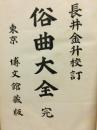 長井金升校訂
俗曲大全 完
東京 博文館蔵版